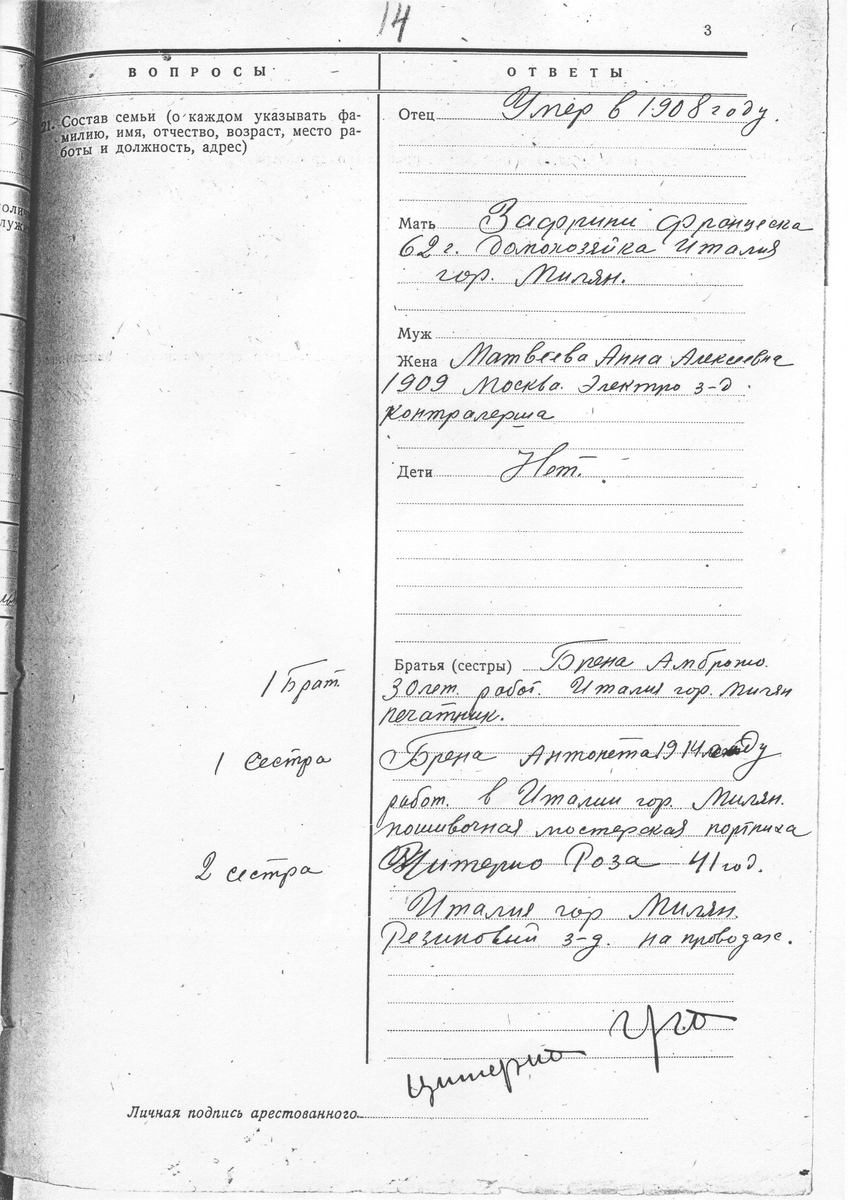 14
3
ВОПРОСЫ
ОТВЕТЫ
21. Состав семьи (о каждом указывать фа-
милию, имя, отчество, возраст, место ра-
боты и должность, адрес)
Отец Умер в 1908 году.
Мать Зафрини Франческа
62 г. домохозяйка Италия
гор. Милян.
Муж
Жена Матвеева Анна Алексеевна
1909 Москва. Электро з-д.
контралерша
Дети Нет.
Братья (сестры) Брена Амброжо.
1 Брат. 30 лет. работ. Италия гор. Милян
печатник.
1 сестра Брена Антонета 1914 году
работ. в Италии гор. Милян.
пошивочная мостерская портниха
2 сестра Читерио Роза 41 год.
Италия гор Милян.
Резиновый з-д. на проводах.
Цитерио Уго
Личная подпись арестованного